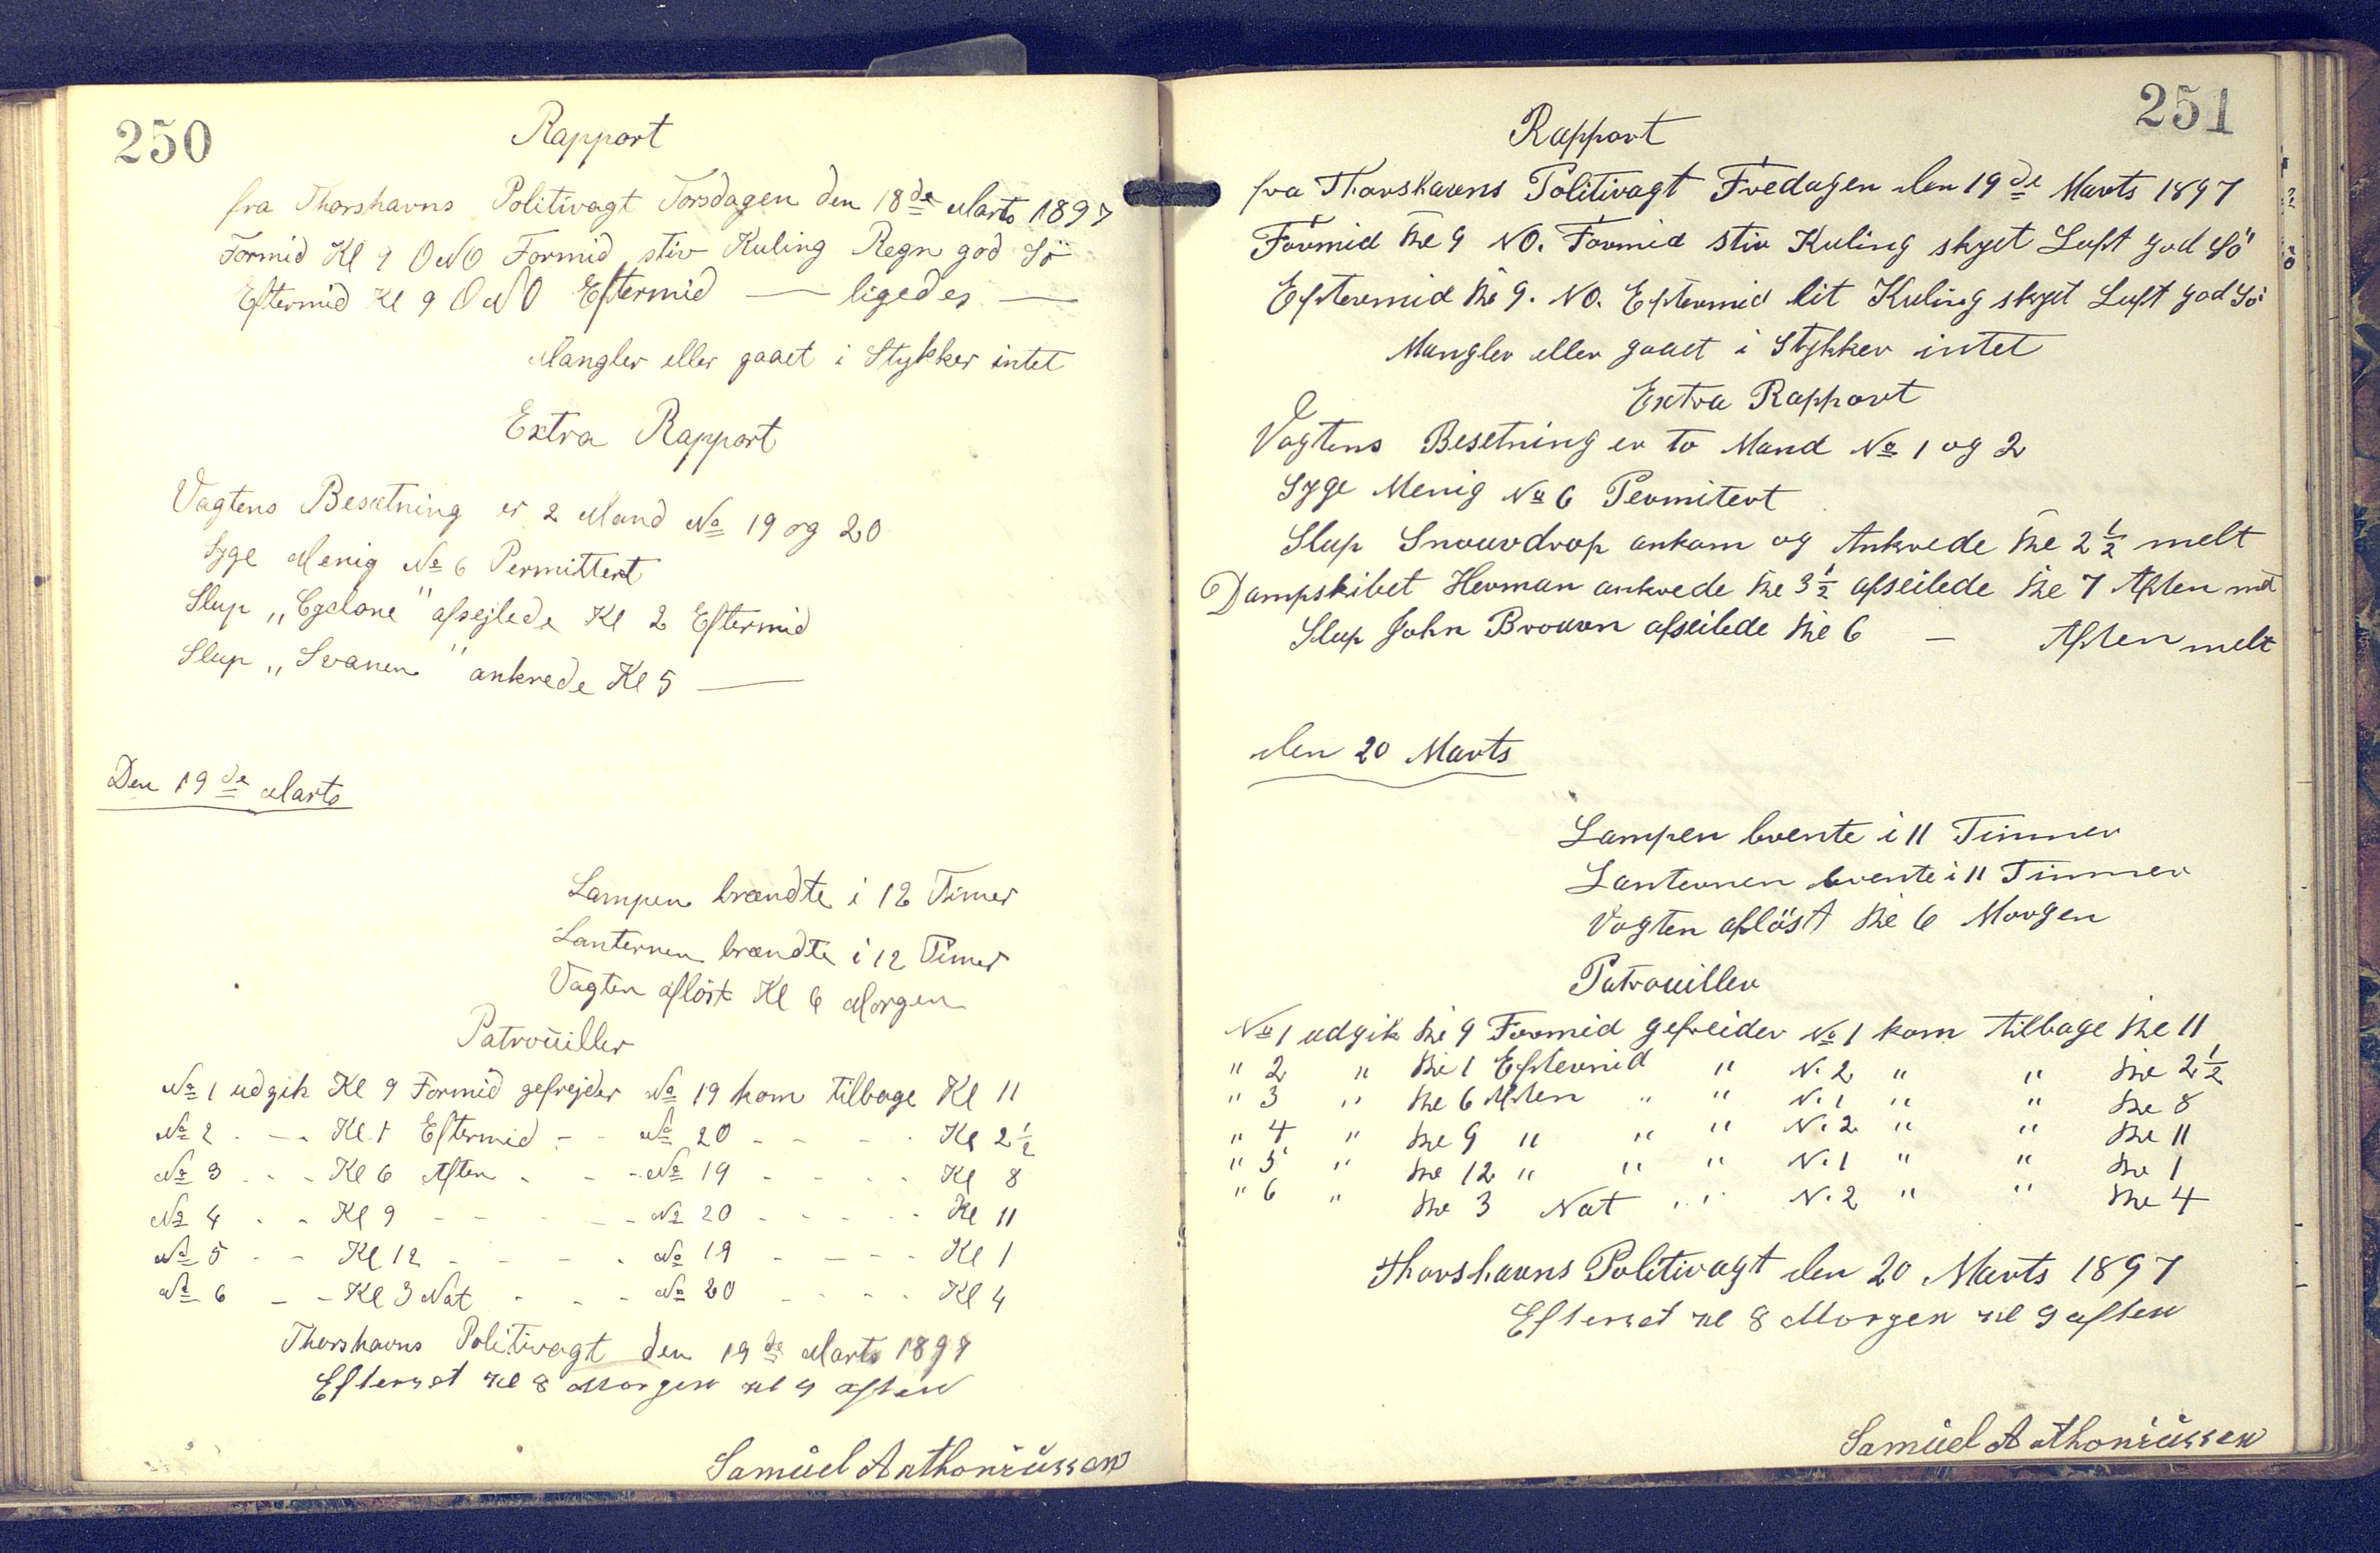 250
Rapport
fra Thorshavns Politivagt Torsdagen den 18de Marts 1897
Formid Kl 9 ONO Formid stiv Kuling Regn god Sö
Eftermid Kl 9 ONO Eftermid — ligedes —
Mangler eller gaaet i Stykker intet
Extra Rapport
Vagtens Besætning er 2 Mand No 19 og 20
Syge Menig No 6 Permittert
Slup „Cyclone" afsejlede Kl 2 Eftermid
Slup „Svanen" ankrede Kl 5 —
Den 19de Marts
Lampen brændte i 12 Timer
Lanternen brændte i 12 Timer
Vagten aflöst Kl 6 Morgen
Patrouiller
No 1 udgik Kl 9 Formid gefrejder No 19 kom tilbage Kl 11
No 2 - - Kl 1 Eftermid - - No 20 - - - - Kl 2 1/2
No 3 - - Kl 6 Aften - - - No 19 - - - - Kl 8
No 4 - - Kl 9 - - - - - No 20 - - - - - Kl 11
No 5 - - Kl 12 - - - - No 19 - - - - Kl 1
No 6 - - Kl 3 Nat - - - No 20 - - - - Kl 4
Thorshavns Politivagt den 19de Marts 1897
Efterset Kl 8 Morgen Kl 9 aften
Samuel Anthoniussen
251
Rapport
fra Thorshavns Politivagt Fredagen den 19de Marts 1897
Formid Kl 9 NO. Formid stiv Kuling skyet Luft god Sö
Eftermid Kl 9. NO. Eftermid lit Kuling skyet Luft god Sö
Mangler eller gaaet i Stykker intet
Extra Rapport
Vagtens Besetning er to Mand No 1 og 2
Syge Menig No 6 Permitert
Slup Snouvdrop ankom og Ankrede Kl 2 1/2 melt
Dampskibet Herman ankrede Kl 3 1/2 afseilede Kl 7 Aften mlt
Slup John Brouvn afseilede Kl 6 — Aften melt
den 20 Marts
Lampen brente i 11 Timmer
Lanternen brente i 11 Timmer
Vagten aflöst Kl 6 Morgen
Patrouiller
No 1 udgik Kl 9 Formid gefreider No 1 kom tilbage Kl 11
" 2 " Kl 1 Eftermid " N. 2 " " Kl 2 1/2
" 3 " Kl 6 Aften " " N. 1 " " Kl 8
" 4 " Kl 9 " " " N. 2 " " Kl 11
" 5 " Kl 12 " " " N. 1 " " Kl 1
" 6 " Kl 3 Nat " " N. 2 " " Kl 4
Thorshavns Politivagt den 20 Marts 1897
Efterset Kl 8 Morgen Kl 9 aften
Samuel Anthoniussen